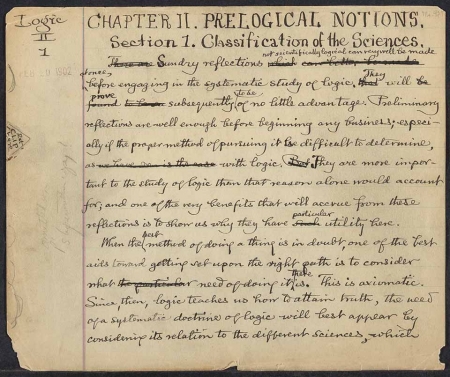 Logic
II
1
CHAPTER II. PRELOGICAL NOTIONS.
Section 1. Classification of the Sciences.
not scientifically logical can very well be made
Sundry reflections
before engaging in the systematic study of logic, They will be
prove
found to have subsequently to be of no little advantage. Preliminary
reflections are well enough before beginning any business; especi-
ally if the proper method of pursuing it be difficult to determine,
as we have seen is the case with logic. But They are more impor-
tant to the study of logic than that reason alone would account
for; and one of the very benefits that will accrue from these
reflections is to show us why they have such particular utility here.
When the best method of doing a thing is in doubt, one of the best
aids toward getting set upon the right path is to consider
what the particular need of doing it there is. This is axiomatic.
Since, then, logic teaches us how to attain truth, the need
of a systematic doctrine of logic will best appear by
considering its relation to the different sciences, which